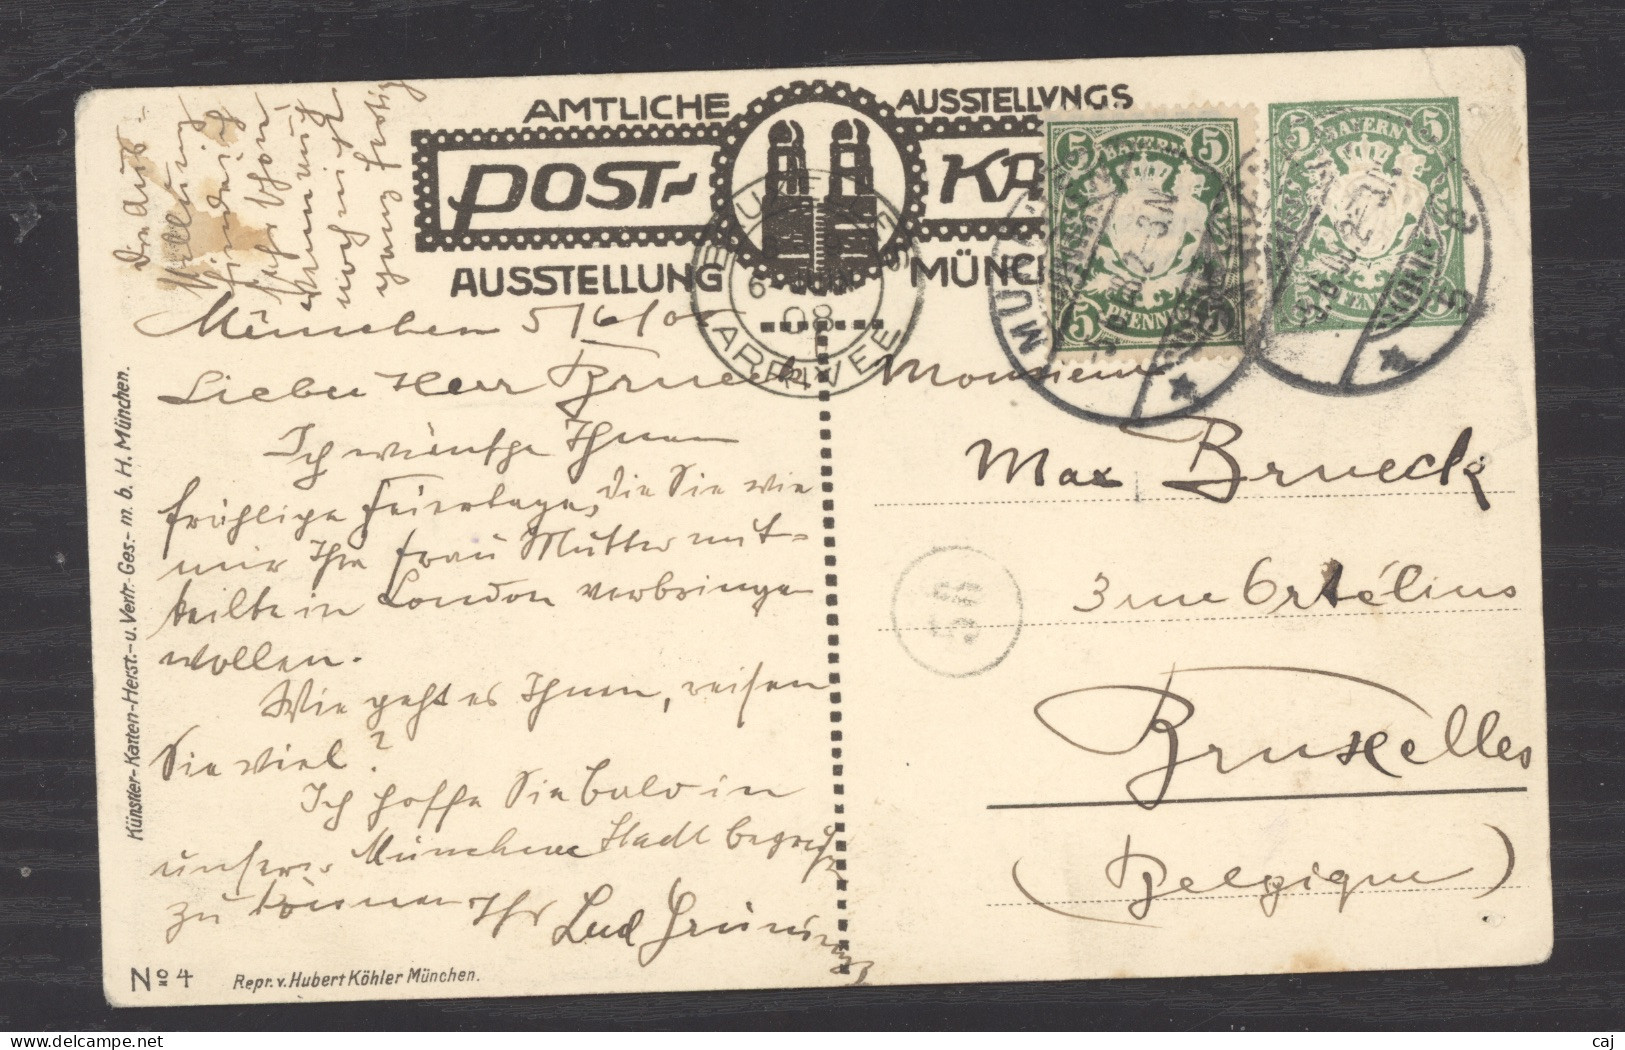 Die Aus-
stellung
finde ich
sehr schön
wenn auch
noch nicht
ganz fertig
AMTLICHE AUSSTELLVNGS
POST- KA
AUSSTELLUNG MÜNC
5 BAYERN 5
5 PFENNIG 5
5 BAYERN 5
PFENNIG
08
ARRIVEE
München 5/6/08
Lieber Herr Brueck
Ich wünsche Ihnen
fröhliche Feiertage, die Sie wie
mir Ihre Frau Mutter mit-
teilte in London verbringen
wollen.
Wie geht es Ihnen, reisen
Sie viel?
Ich hoffe Sie bald in
unserer Münchener Stadt begrüßen
zu können Ihr Lud
Monsieur
Max Brueck
3 rue Ortélius
Bruxelles
(Belgique)
Künstler-Karten-Herst.-u. Vertr.-Ges.-m. b. H. München.
No 4 Repr. v. Hubert Köhler München.
caj